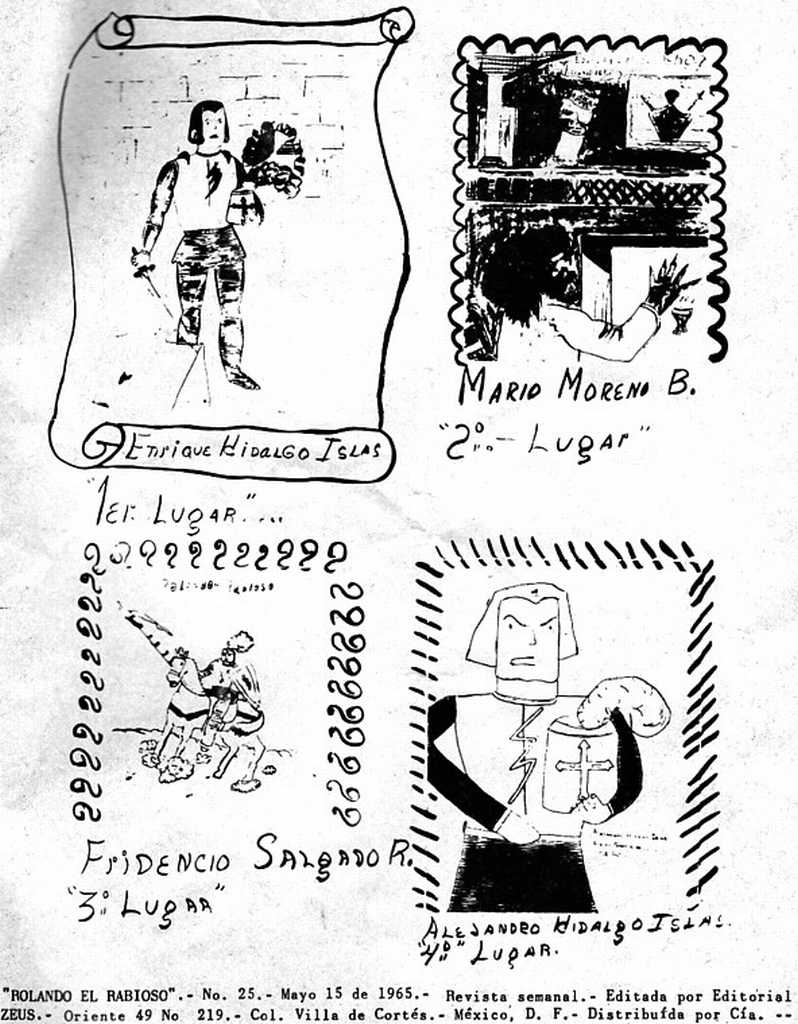 Enrique Hidalgo Islas
"1er. Lugar"....
Mario Moreno B.
"2º..- Lugar"
Fridencio Salgado R.
"3º. Lugar"
Alejandro Hidalgo Islas.
"4º" Lugar.
"ROLANDO EL RABIOSO".- No. 25.- Mayo 15 de 1965.- Revista semanal.- Editada por Editorial
ZEUS.- Oriente 49 No 219.- Col. Villa de Cortés.- México, D. F.- Distribuída por Cía. --